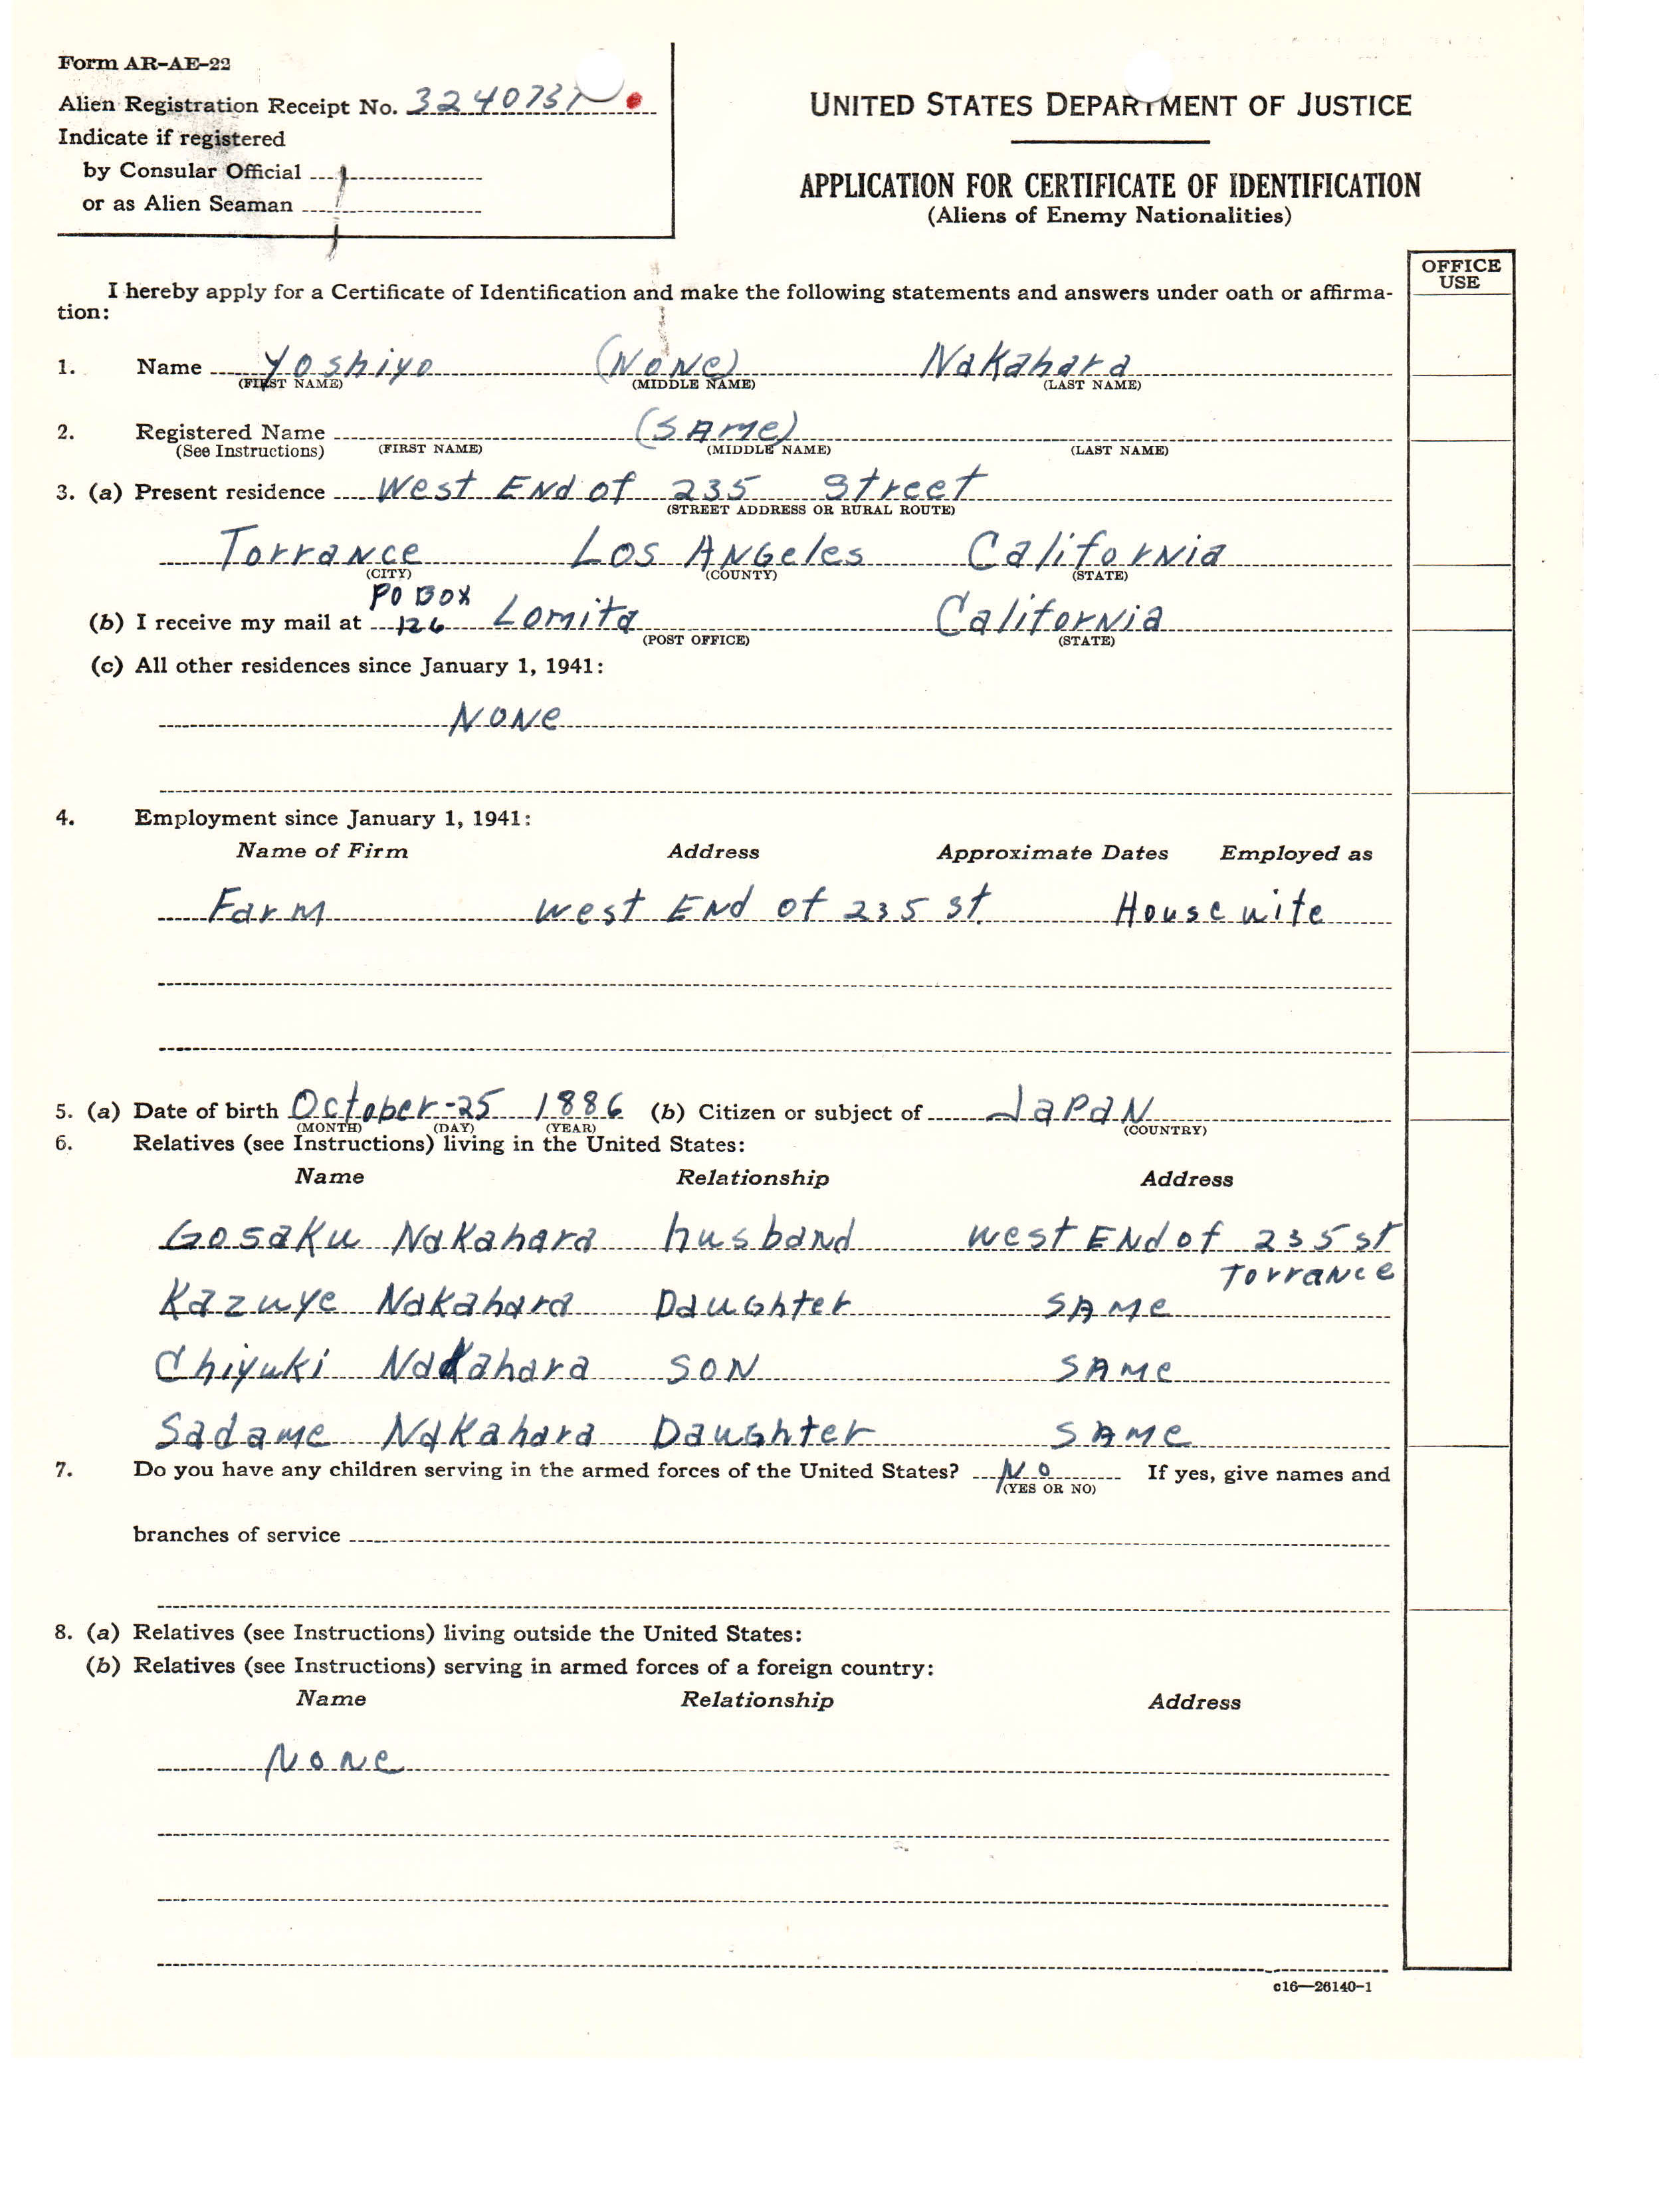 Form AR-AE-22
Alien Registration Receipt No. 3240737
Indicate if registered
by Consular Official
or as Alien Seaman
UNITED STATES DEPARTMENT OF JUSTICE
APPLICATION FOR CERTIFICATE OF IDENTIFICATION
(Aliens of Enemy Nationalities)
OFFICE
USE
I hereby apply for a Certificate of Identification and make the following statements and answers under oath or affirma-
tion:
1. Name Yoshiyo (NoNe) NaKahara
(FIRST NAME) (MIDDLE NAME) (LAST NAME)
2. Registered Name (SAMe)
(See Instructions) (FIRST NAME) (MIDDLE NAME) (LAST NAME)
3. (a) Present residence West ENd of 235 Street
(STREET ADDRESS OR RURAL ROUTE)
TorraNce Los ANGeles CaliforNia
(CITY) (COUNTY) (STATE)
PO BOX
(b) I receive my mail at 126 Lomita CaliforNia
(POST OFFICE) (STATE)
(c) All other residences since January 1, 1941:
NONe
4. Employment since January 1, 1941:
Name of Firm Address Approximate Dates Employed as
FarM west ENd of 235 st. Housewife
5. (a) Date of birth October-25 1886 (b) Citizen or subject of JaPaN
(MONTH) (DAY) (YEAR) (COUNTRY)
6. Relatives (see Instructions) living in the United States:
Name Relationship Address
GosaKu NaKahara husbaNd west ENd of 235 st
TorraNce
Kazuye NaKahara DauGhter SAMe
Chiyuki NaKahara SON SAMe
Sadame NaKahara DauGhter SAMe
7. Do you have any children serving in the armed forces of the United States? No If yes, give names and
(YES OR NO)
branches of service
8. (a) Relatives (see Instructions) living outside the United States:
(b) Relatives (see Instructions) serving in armed forces of a foreign country:
Name Relationship Address
NoNe
c16—26140-1